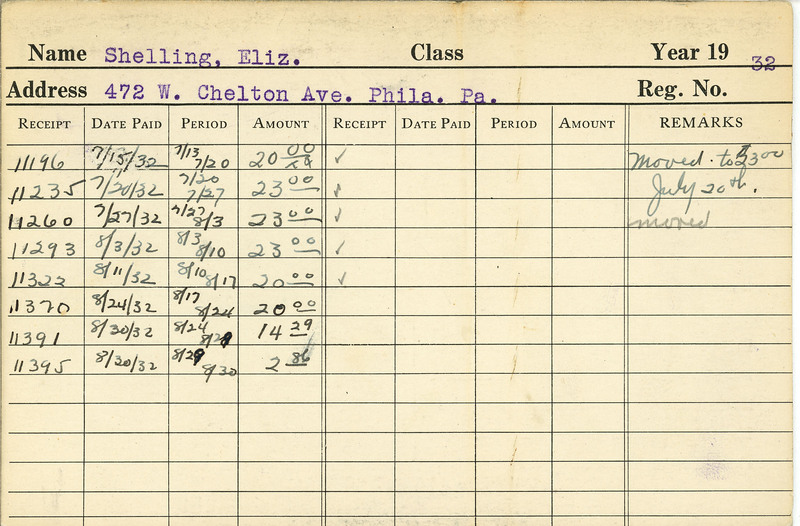 Name Shelling, Eliz. Class Year 19 32
Address 472 W. Chelton Ave. Phila. Pa. Reg. No.
RECEIPT DATE PAID PERIOD AMOUNT RECEIPT DATE PAID PERIOD AMOUNT REMARKS
11196 7/15/32 7/13 7/20 20 00 ✓ Moved to $23 00
11235 7/20/32 7/20 7/27 23 00 ✓ July 20th.
11260 7/27/32 7/27 8/3 23 00 ✓ moved
11293 8/3/32 8/3 8/10 23 00 ✓
11322 8/11/32 8/10 8/17 20 00 ✓
11370 8/24/32 8/17 8/24 20 00
11391 8/30/32 8/24 8/29 14 29
11395 8/30/32 8/29 8/30 2 86